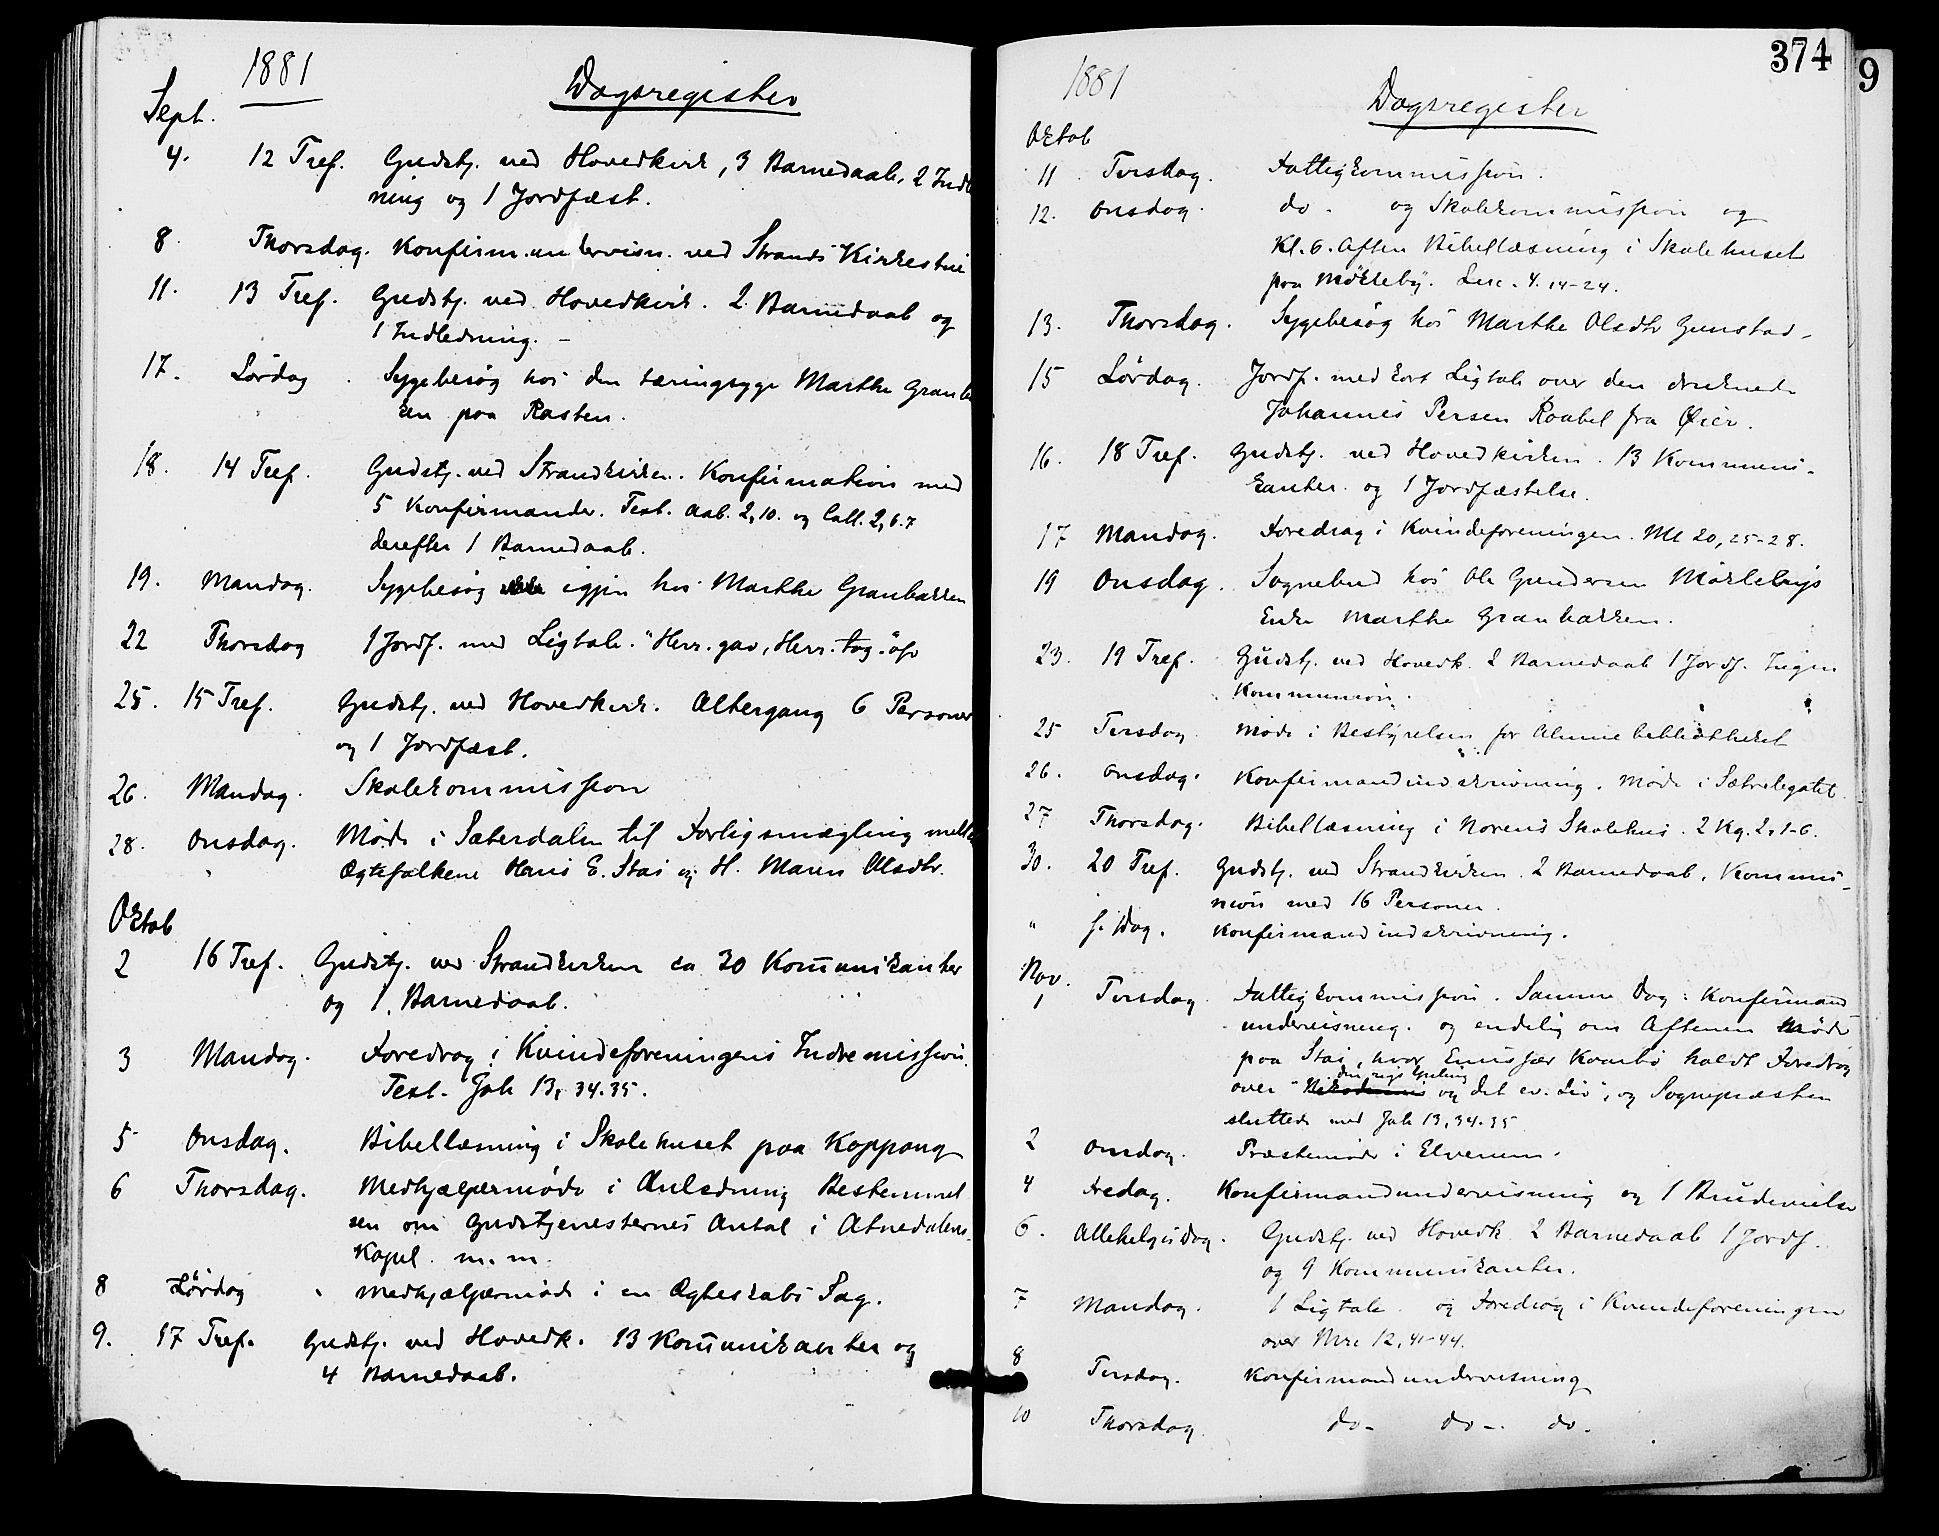 1881
Dagsregister
Sept.
4. 12 Tref. Gudstj. ved Hovedkirk, 3 Barnedaab, 2 Indled
ning og 1 Jordfæst.
8. Thorsdag. Konfirm.undervisn. ved Strands Kirkestue
11. 13 Tref. Gudstj. ved Hovedkirk. 2 Barnedaab og
1 Indledning. –
17. Lørdag. Sygebesøg hos den tæringsyge Marthe Granbæ
ken paa Rasten.
18. 14 Tref. Gudstj. ved Strandkirken. Konfirmation med
5 Konfirmander. Text. Aab. 2,10. og Coll. 2,6.7
derefter 1 Barnedaab.
19. Mandag. Sygebesøg igjen hos Marthe Granbækken
22 Thorsdag 1 Jordf. med Ligtale. "Herr. gav, Herr. tog." ofv
25. 15 Tref. Gudstj. ved Hovedkirk. Altergang 6 Personer
og 1 Jordfæst.
26. Mandag. Skolekommission
28. Onsdag. Møde i Sæterdalen til Forligsmægling mell
Ægtefolkene Hans E. Stai og H. Maren Olsdtr.
Oktob
2 16 Tref. Gudstj. ved Strandkirken ca 30 Kom̄unikanter
og 1 Barnedaab.
3 Mandag. Foredrag i Kvindeforeningens Indremission.
Text. Joh 13, 34.35.
5 Onsdag. Bibellæsning i Skolehuset paa Koppang
6 Thorsdag. Medhjælpermøde i Anledning Bestemmel
sen om Gudstjenesternes Antal i Atnedalens
Kapel m. m.
8 Lørdag " Medhjælpermøde i en Ægteskabs Sag.
9. 17 Tref. Gudstj. ved Hovedk. 13 Kom̄unikanter og
4 Barnedaab.
374
9
1881
Dagsregister
Oktob
11. Tirsdag. Fattigkommission.
12. Onsdag. do. og Skolekommission og
Kl. 6. Aften Bibellæsning i Skolehuset
paa Møkleby. Luc. 4. 14-24.
13. Thorsdag. Sygebesøg hos Marthe Olsdtr Gunstad.
15 Lørdag. Jordf. med kort Ligtale over den druknede
Johannes Persen Raabel fra Øier.
16. 18 Tref. Gudstj. ved Hovedkirken. 13 Kommuni-
kanter. og 1 Jordfæstelse.
17 Mandag. Foredrag i Kvindeforeningen. Mt 20,25-28.
19 Onsdag. Sognebud hos Ole Gundersen Møklebys
Enke Marthe Granbækken.
23. 19 Tref. Gudstj. ved Hovedk. 2 Barnedaab 1 Jordf. Ingen
Kommunion.
25 Tirsdag Møde i Bestyrelsen for Almuebibliotheket
26. Onsdag. Konfirmandindskrivning. Møde i Sætrelegatet.
27 Thorsdag. Bibellæsning i Norend Skolehus. 2 Kg. 2,1-6.
30. 20 Tref. Gudstj. ved Strandkirken. 2 Barnedaab. Kommu-
nion med 16 Personer.
" S. Dag. Konfirmandindskrivning.
Nov.
1 Tirsdag. Fattigkommission. Samme Dag: Konfirmand
undervisning. og endelig om Aftenen Møde
paa Stai, hvor Emissær holdt Foredrag
den rige Yngling
over "Nikodemus og det ev. Liv", og Sognepræsten
sluttede med Joh 13,34.35
2 Onsdag. Præstemøde i Elverum.
4 Fredag. Konfirmandundervisning og 1 Brudevielse
6. Allehelgensdag. Gudstj. ved Hovedk. 2 Barnedaab 1 Jordf.
og 9 Kommunikanter.
7 Mandag. 1 Ligtale. og Foredrag i Kvindeforeningen
over Mrc 12,41-44.
8 Tirsdag. Konfirmandundervisning
10 Thorsdag do- do-. do.